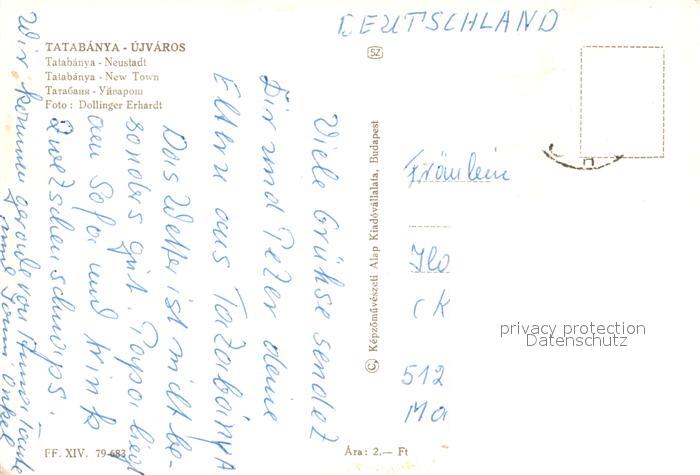 DEUTSCHLAND
TATABÁNYA - ÚJVÁROS
Tatabánya - Neustadt
Tatabánya - New Town
Татабаня - Уйварош
Foto : Dollinger Erhardt
SZ
Viele Grühse sendet
Dir und Peter deine
Eltern aus Tatabánya
Das Wetter ist nicht be-
sonders gut. Papa liegt
auf Sofa und trinkt
Zwetschenschnaps.
Wir kommen gerade von Tante
und Onkel
Képzőművészeti Alap Kiadóvállalata, Budapest
Fräulein
Ilo
CK
512
Ma
privacy protection
Datenschutz
FF. XIV. 79-683
Ára: 2.— Ft